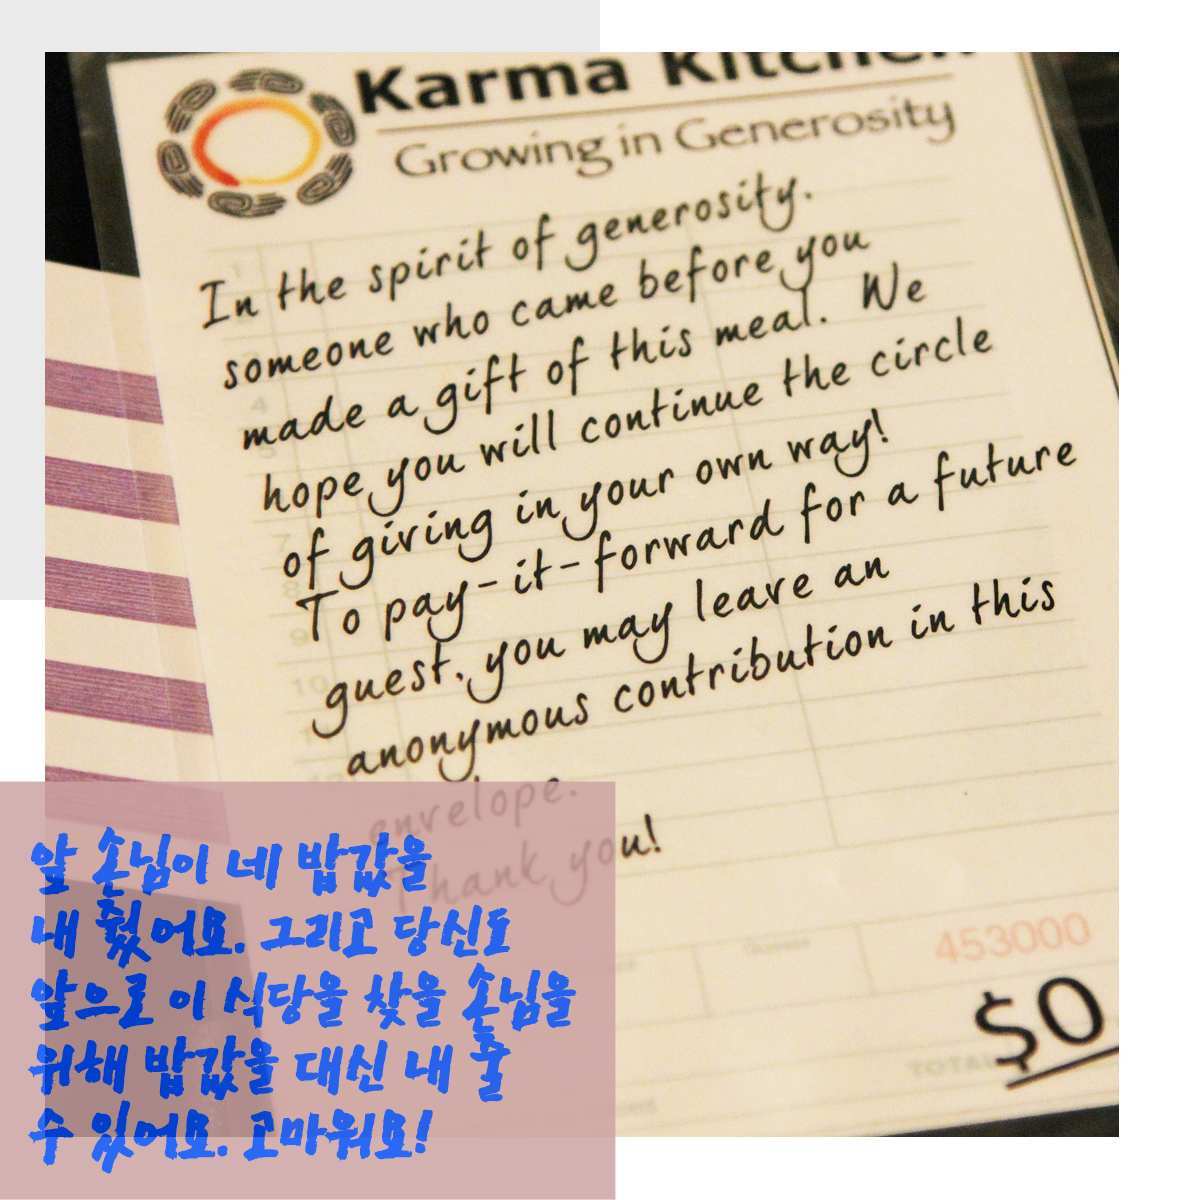 Karma Kitchen
Growing in Generosity
In the spirit of generosity.
someone who came before you
made a gift of this meal. We
hope you will continue the circle
of giving in your own way!
To pay-it-forward for a future
guest. you may leave an
anonymous contribution in this
envelope.
Thank you!
453000
TOTAL $0
앞 손님이 네 밥값을
내 줬어요. 그리고 당신도
앞으로 이 식당을 찾을 손님을
위해 밥값을 대신 내 줄
수 있어요. 고마워요!